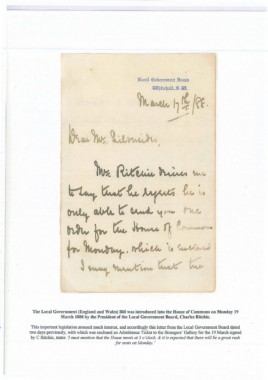 Local Government Board
Whitehall, S.W.
March 17th /88.
Dear Mr.
Mr. Ritchie desires me
to say that he regrets he is
only able to send you one
order for the House of Commons
for Monday, which is enclosed
I may mention that the
The Local Government (England and Wales) Bill was introduced into the House of Commons on Monday 19
March 1888 by the President of the Local Government Board, Charles Ritchie.
This important legislation aroused much interest, and accordingly this letter from the Local Government Board dated
two days previously, with which was enclosed an Admittance Ticket to the Strangers' Gallery for the 19 March signed
by C Ritchie, states 'I must mention that the House meets at 3 o'clock, & it is expected that there will be a great rush
for seats on Monday.'